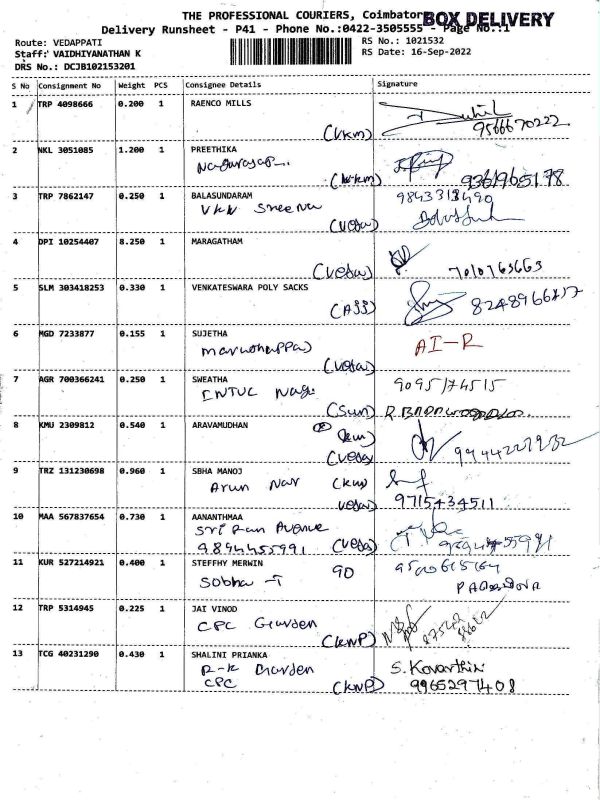 THE PROFESSIONAL COURIERS, Coimbator
BOX DELIVERY
Delivery Runsheet - P41 - Phone No.:0422-3505555 - Page No.:1
Route: VEDAPPATI
RS No.: 1021532
Staff: VAIDHIYANATHAN K
RS Date: 16-Sep-2022
DRS No.: DCJB102153201
S No Consignment No Weight PCS Consignee Details Signature
1 TRP 4098666 0.200 1 RAENCO MILLS
(Vkm) 9566670222
2 NKL 3051085 1.200 1 PREETHIKA
9361965178
3 TRP 7862147 0.250 1 BALASUNDARAM
VKV
(veda)
4 DPI 10254407 8.250 1 MARAGATHAM
(veda) 7010763663
5 SLM 303418253 0.330 1 VENKATESWARA POLY SACKS
6 MGD 7233877 0.155 1 SUJETHA AI-R
(veda)
7 AGR 700366241 0.250 1 SWEATHA 9095174515
INTUC Nagr
(Sun)
8 KMU 2309812 0.540 1 ARAVAMUDHAN
(veda)
9 TRZ 131230698 0.960 1 SBHA MANOJ
Arun Nar
veda) 9715434511
10 MAA 567837654 0.730 1 AANANTHMAA
Sri Ram Avenue
9894455991 (veda)
11 KUR 527214921 0.400 1 STEFFHY MERWIN 90
Sobha -T
12 TRP 5314945 0.225 1 JAI VINOD
CPC Gurden
(KNP)
13 TCG 40231290 0.430 1 SHALINI PRIANKA
R-K Gurden
CPC (KNP) 9965297408